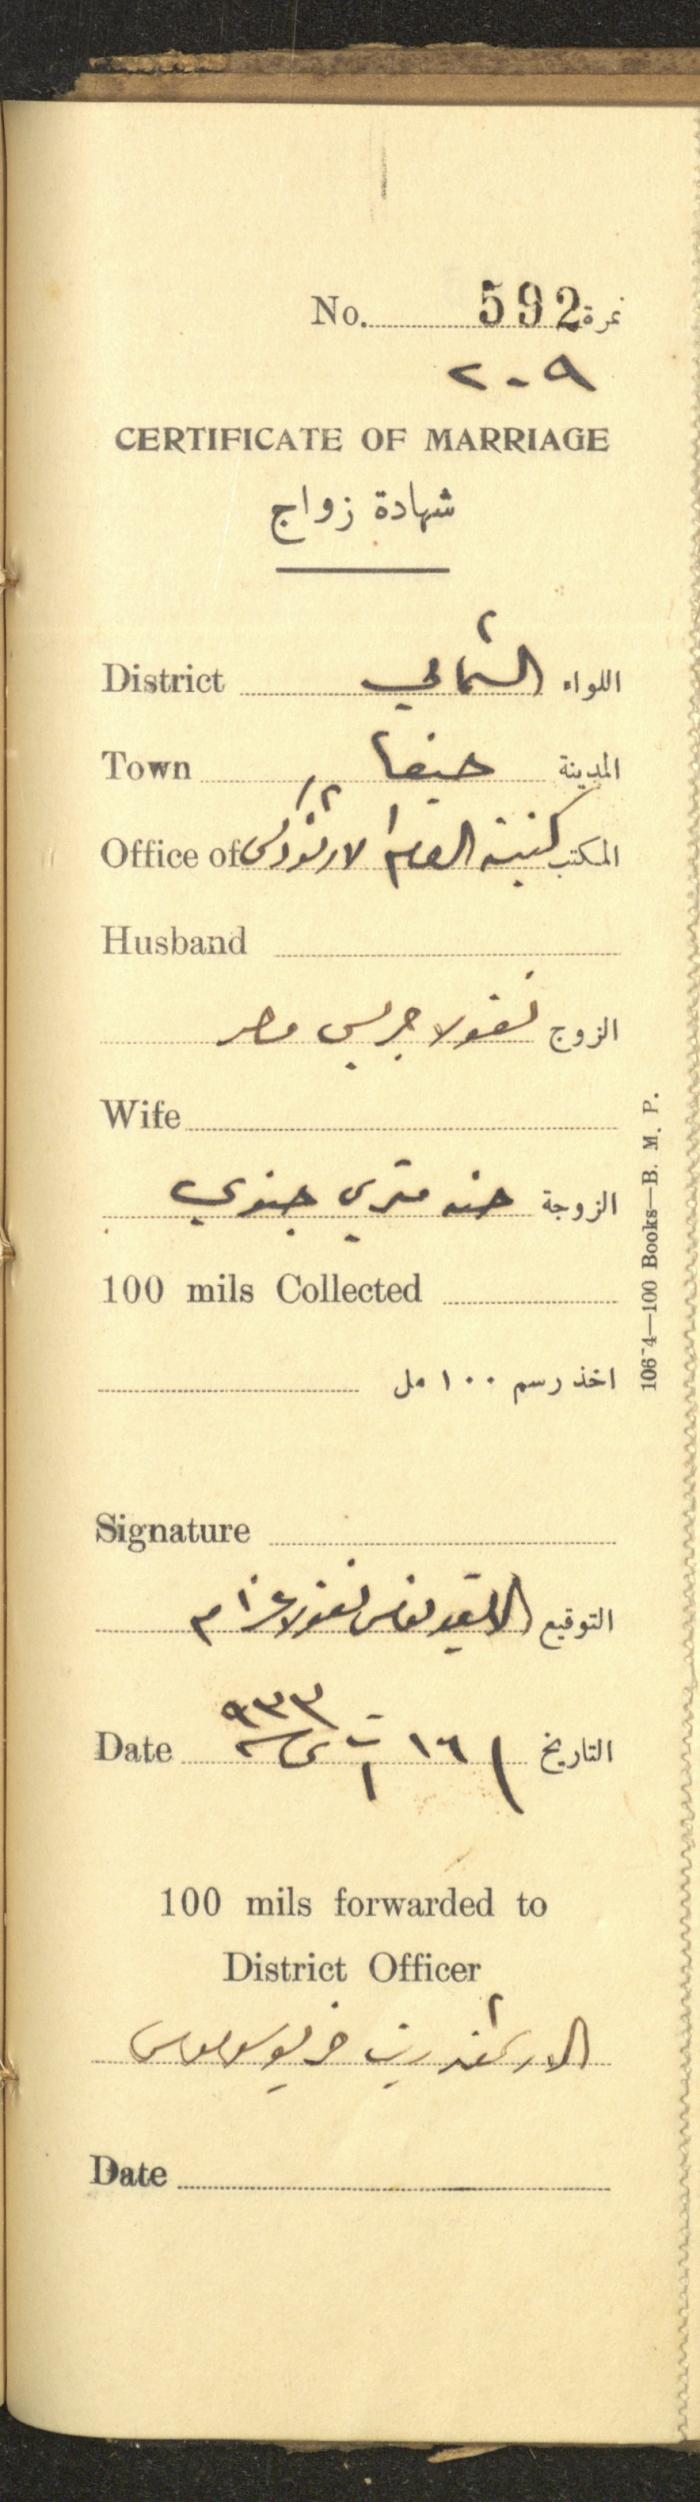 No. 592 نمرة
٢٠٩
CERTIFICATE OF MARRIAGE
شهادة زواج
District الشمالي اللواء
Town حيفا المدينة
Office of كنيسة الروم الارثوذكس المكتب
Husband
الزوج نقولا جريس مصر
Wife
الزوجة حنه متري
100 mils Collected
اخذ رسم ١٠٠ مل
Signature
التوقيع نقولا عزام
Date ١٦ ت ١ سنة ٩٣٣ التاريخ
100 mils forwarded to
District Officer
الارشمندريت
Date
106-4—100 Books—B. M. P.